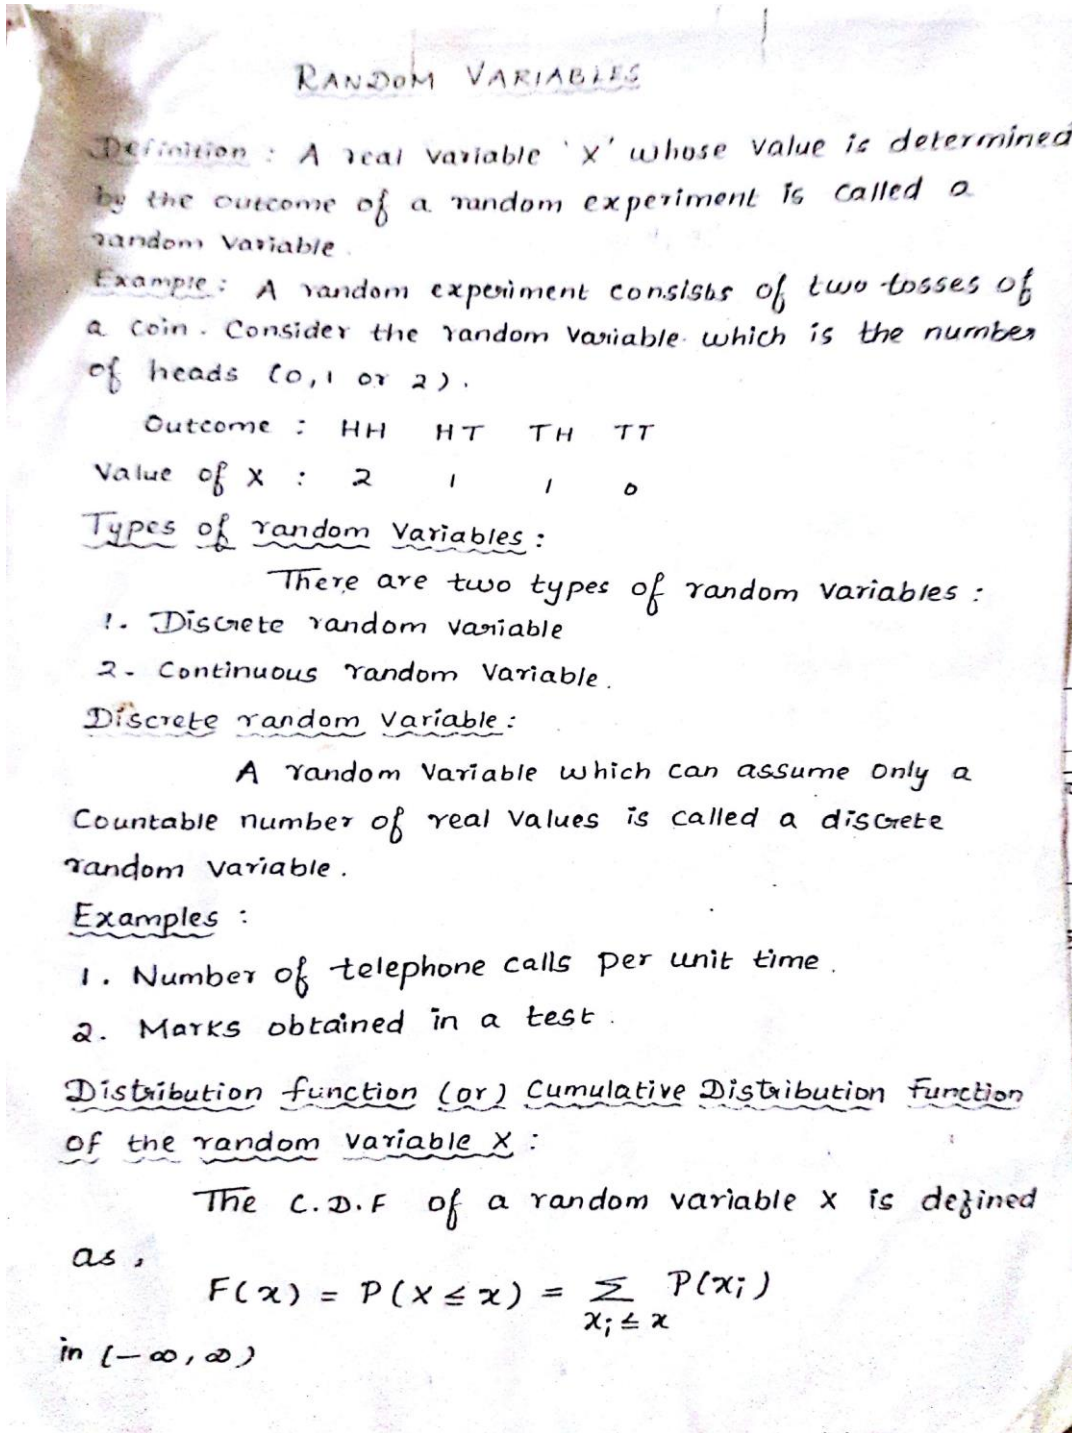 RANDOM VARIABLES
Definition : A real variable 'X' whose value is determined
by the outcome of a random experiment is called a
random variable.
Example : A random experiment consists of two tosses of
a coin. Consider the random variable which is the number
of heads (0, 1 or 2).
Outcome : HH HT TH TT
Value of X : 2 1 1 0
Types of random variables :
There are two types of random variables :
1. Discrete random variable
2. Continuous random variable.
Discrete random variable :
A random variable which can assume only a
Countable number of real values is called a discrete
random variable.
Examples :
1. Number of telephone calls per unit time.
2. Marks obtained in a test.
Distribution function (or) Cumulative Distribution function
of the random variable X :
The C.D.F of a random variable X is defined
as,
F(x) = P(X ≤ x) = Σ P(xᵢ)
xᵢ ≤ x
in (-∞, ∞)